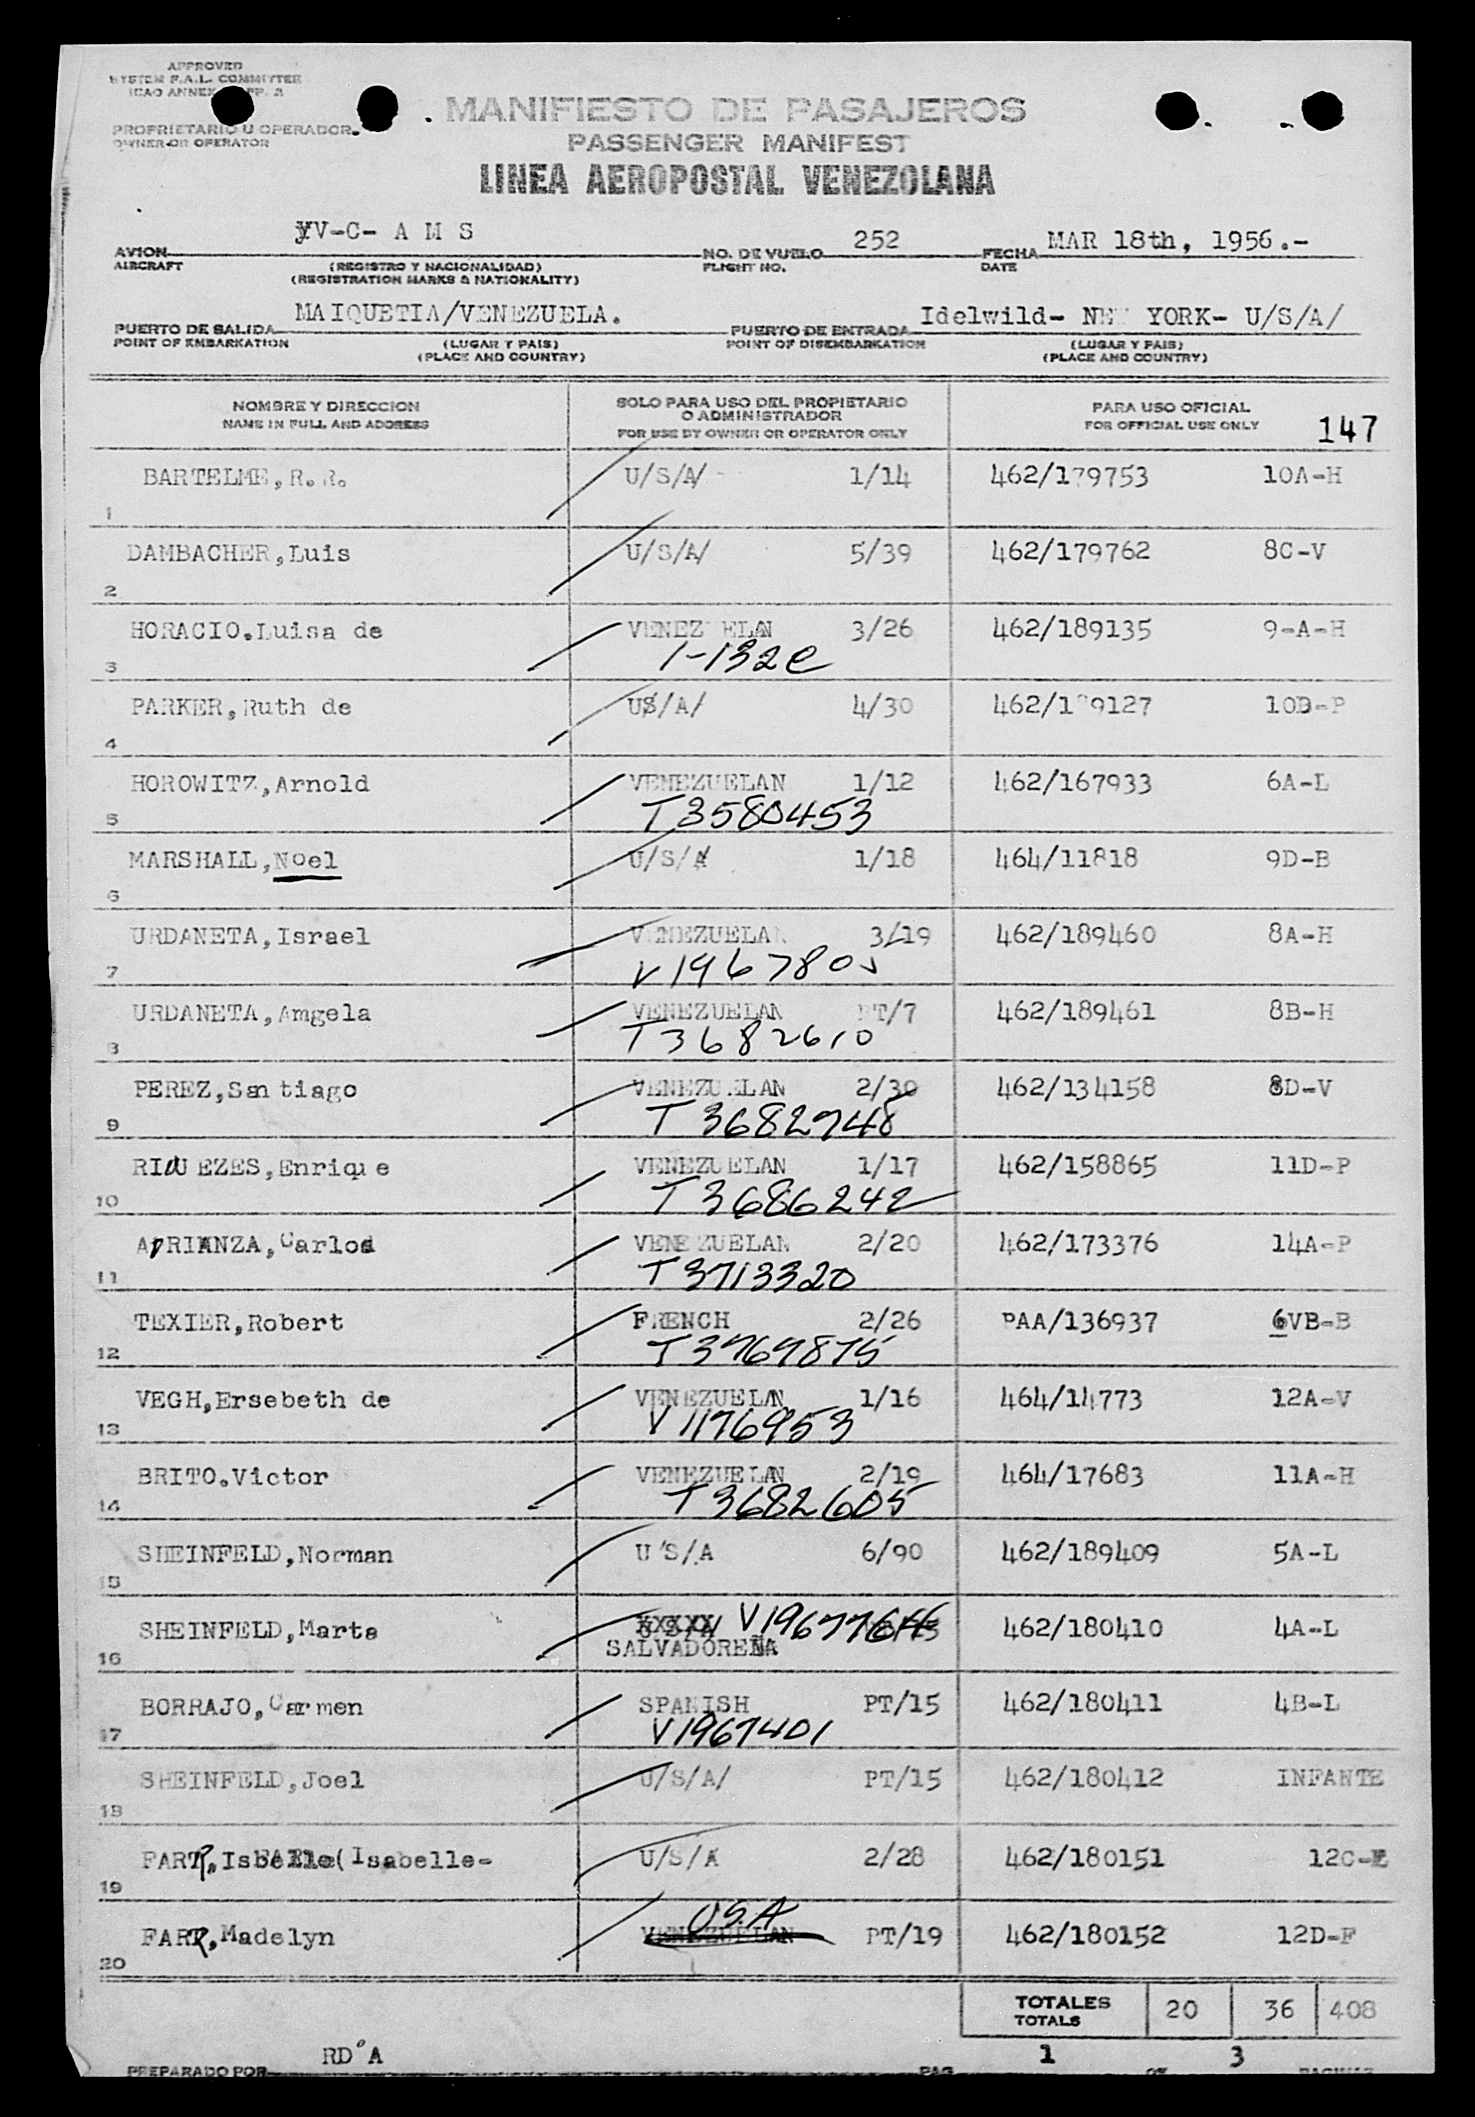 APPROVED
SYSTEM F.A.L. COMMITTEE
ICAO ANNEX PP. 2
PROPRIETARIO U OPERADOR
OWNER OR OPERATOR
MANIFIESTO DE PASAJEROS
PASSENGER MANIFEST
LINEA AEROPOSTAL VENEZOLANA
YV-C- A M S 252 MAR 18th, 1956.-
AVION NO. DE VUELO FECHA
AIRCRAFT (REGISTRO Y NACIONALIDAD) FLIGHT NO. DATE
(REGISTRATION MARKS & NATIONALITY)
MAIQUETIA/VENEZUELA. Idelwild- NEW YORK- U/S/A/
PUERTO DE SALIDA PUERTO DE ENTRADA
POINT OF EMBARKATION (LUGAR Y PAIS) POINT OF DISEMBARKATION (LUGAR Y PAIS)
(PLACE AND COUNTRY) (PLACE AND COUNTRY)
NOMBRE Y DIRECCION SOLO PARA USO DEL PROPIETARIO PARA USO OFICIAL
NAME IN FULL AND ADDRESS O ADMINISTRADOR FOR OFFICIAL USE ONLY 147
FOR USE BY OWNER OR OPERATOR ONLY
BARTELME,R.R. U/S/A/ 1/14 462/179753 10A-H
1
DAMBACHER,Luis U/S/A/ 5/39 462/179762 8C-V
2
HORACIO.Luisa de VENEZUELAN 3/26 462/189135 9-A-H
1-132e
3
PARKER,Ruth de US/A/ 4/30 462/189127 10B-P
4
HOROWITZ,Arnold VENEZUELAN 1/12 462/167933 6A-L
T3580453
5
MARSHALL,Noel U/S/A 1/18 464/11818 9D-B
6
URDANETA,Israel VENEZUELAN 3/19 462/189460 8A-H
V1967805
7
URDANETA,Amgela VENEZUELAN PT/7 462/189461 8B-H
T3682610
8
PEREZ,Santiago VENEZUELAN 2/30 462/134158 8D-V
T 3682748
9
RIQUEZES,Enrique VENEZUELAN 1/17 462/158865 11D-P
T3686242
10
ARRIANZA,Carlos VENEZUELAN 2/20 462/173376 14A-P
T3713320
11
TEXIER,Robert FRENCH 2/26 PAA/136937 6VB-B
T3767875
12
VEGH,Ersebeth de VENEZUELAN 1/16 464/14773 12A-V
V1176953
13
BRITO.Victor VENEZUELAN 2/19 464/17683 11A-H
T3682605
14
SHEINFELD,Norman U/S/A 6/90 462/189409 5A-L
15
SHEINFELD,Marta XXXXX V1967764 462/180410 4A-L
SALVADOREÑA
16
BORRAJO,Carmen SPANISH PT/15 462/180411 4B-L
V1967401
17
SHEINFELD,Joel U/S/A/ PT/15 462/180412 INFANTE
18
FARR,Isbelle(Isabelle- U/S/A 2/28 462/180151 12C-F
19
U.S.A
FARR,Madelyn VENEZUELAN PT/19 462/180152 12D-F
20
TOTALES 20 36 408
TOTALS
RD°A 1 3
PREPARADO POR PAG. OF PAGINAS